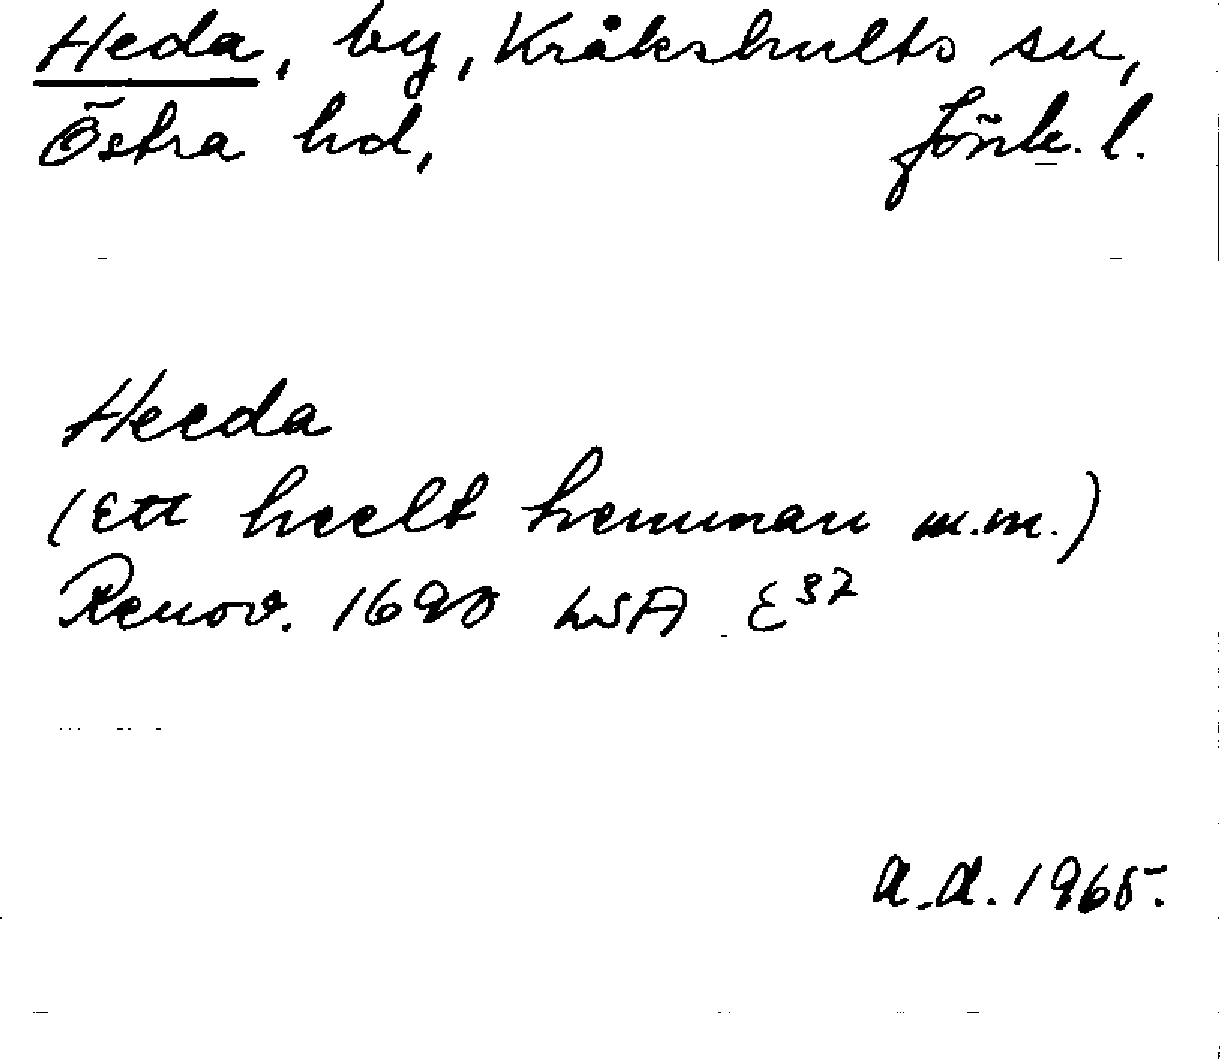 Heda, by, Kråkshults sn,
Östra hd, Jönk. l.
Heeda
(Ett heelt hemman m.m.)
Renov. 1690 LSA E³²
A.d. 1965.